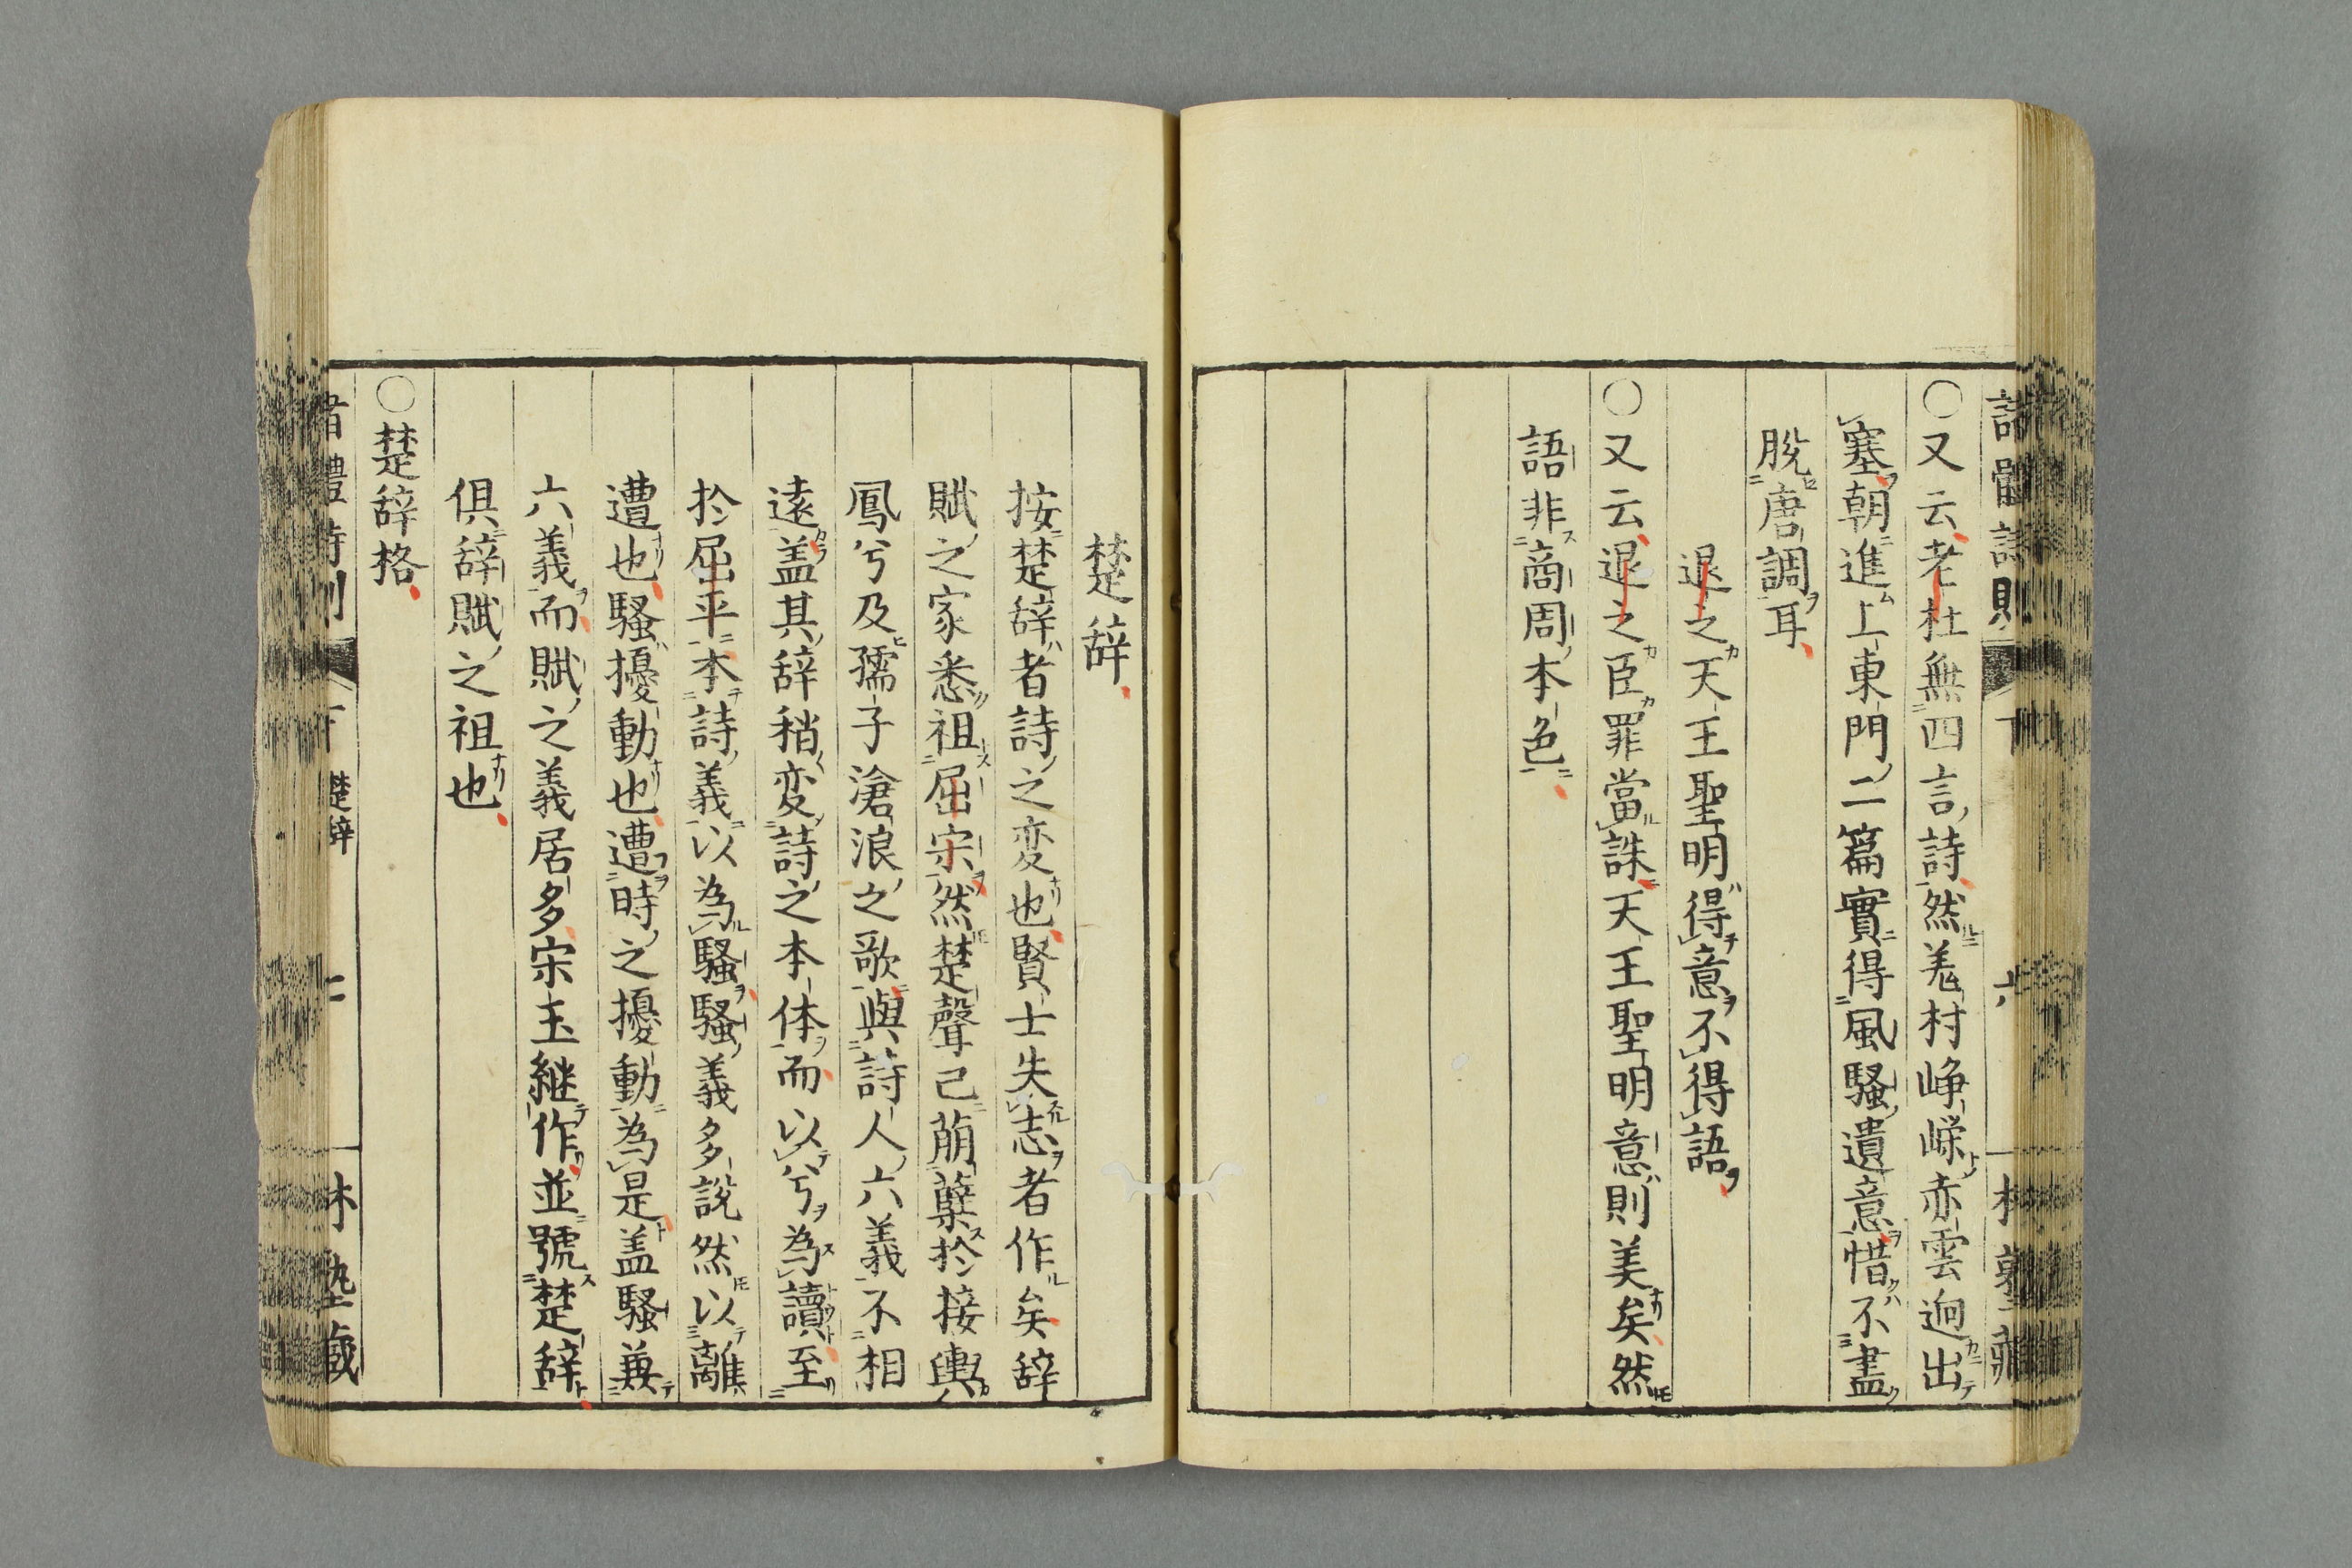 〇又云老杜無四言詩然羗村崢嶸赤雲迥出
塞朝進上東門二篇實得風騷遺意惜不盡
脫唐調耳
退之天王聖明得意不得語
〇又云退之臣罪當誅天王聖明意則美矣然
語非商周本色
楚辞
按楚辞者詩之変也賢士失志者作矣辞
賦之家悉祖屈宋然楚聲已萠蘖於接輿
鳳兮及孺子滄浪之歌與詩人六義不相
遠盖其辞稍変詩之本体而以兮為讀至
於屈平本詩義以為騷騷義多說然以離
遭也騷擾動也遭時之擾動為是盖騷兼
六義而賦之義居多宋玉継作並號楚辞
俱辞賦之祖也
〇楚辞格